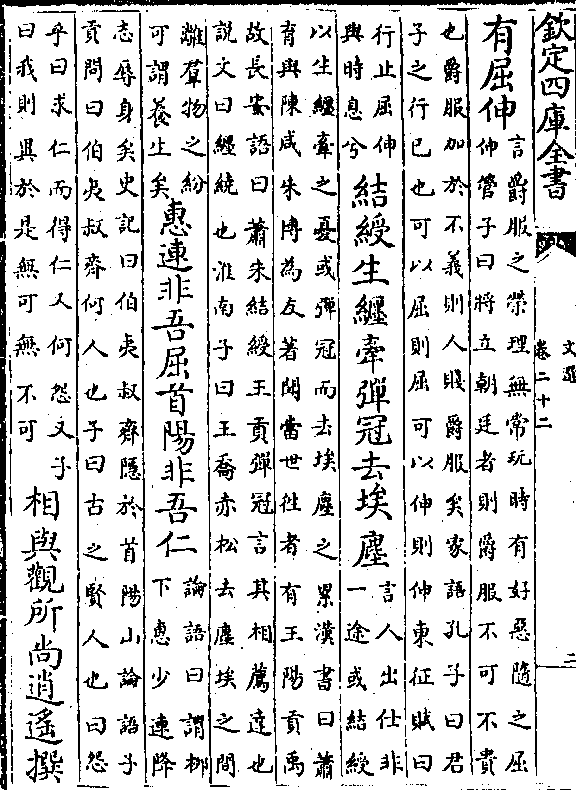 欽定四庫全書
文選
卷二十二
二
有屈伸
言爵服之榮理無常玩時有好惡隨之屈
伸管子曰將立朝廷者則爵服不可不貴
也爵服加於不義則人賤爵服矣家語孔子曰君
子之行已也可以屈則屈可以伸則伸東征賦曰
行止屈伸
與時息兮
結綬生纏牽彈冠去埃塵
言人出仕非
一途或結綬
以生纏牽之憂或彈冠而去埃塵之累漢書曰蕭
育與陳咸朱博為友著聞當世徃者有王陽貢禹
故長安語曰蕭朱結綬王貢彈冠言其相薦達也
說文曰纏繞也淮南子曰王喬赤松去塵埃之間
離羣物之紛
可謂養生矣
惠連非吾屈首陽非吾仁
論語曰謂桞
下惠少連降
志辱身矣史記曰伯夷叔齊隱於首陽山論語子
貢問曰伯夷叔齊何人也子曰古之賢人也曰怨
乎曰求仁而得仁又何怨又子
曰我則異於是無可無不可
相與觀所尚逍遙撰